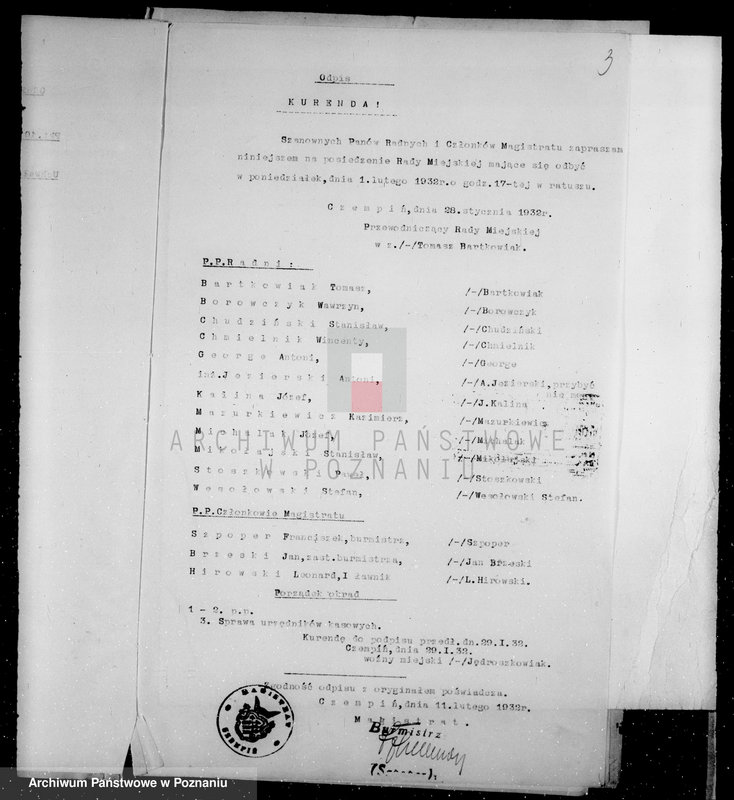 3
Odpis
KURENDA!
Szanownych Panów Radnych i Członków Magistratu zapraszam
niniejszem na posiedzenie Rady Miejskiej mające się odbyć
w poniedziałek, dnia 1.lutego 1932r.o godz.17-tej w ratuszu.
Czempiń, dnia 28.stycznia 1932r.
Przewodniczący Rady Miejskiej
w z./-/Tomasz Bartkowiak.
P.P.Radni:
Bartkowiak Tomasz, /-/Bartkowiak
Borowczyk Wawrzyn, /-/Borowczyk
Chudziński Stanisław, /-/Chudziński
Chmielnik Wincenty, /-/Chmielnik
George Antoni, /-/George
inż.Jezierski Antoni, /-/A.Jezierski,przybyć
nie
Kalina Józef, /-/J.Kalina
Mazurkiewicz Kazimierz, /-/Mazurkiewicz
Michalak Józef, /-/Michalak
Mikołajski Stanisław, /-/Mikołajski
Stoszkowski Paweł, /-/Stoszkowski
Wesołowski Stefan, /-/Wesołowski Stefan.
P.P.Członkowie Magistratu
Szpoper Franciszek,burmistrz, /-/Szpoper
Brzeski Jan,zast.burmistrza, /-/Jan Brzeski
Hirowski Leonard,I ławnik /-/L.Hirowski.
Porządek obrad
1 - 2. p.p.
3. Sprawa urzędników kasowych.
Kurendę do podpisu przedł.dn.29.I.32.
Czempiń,dnia 29.I.32.
woźny miejski /-/Jędroszkowiak.
Zgodność odpisu z oryginałem poświadcza.
Czempiń,dnia 11.lutego 1932r.
Magistrat.
Burmistrz
MAGISTRAT
CZEMPIŃ
ARCHIWUM PAŃSTWOWE
W POZNANIU
Archiwum Państwowe w Poznaniu